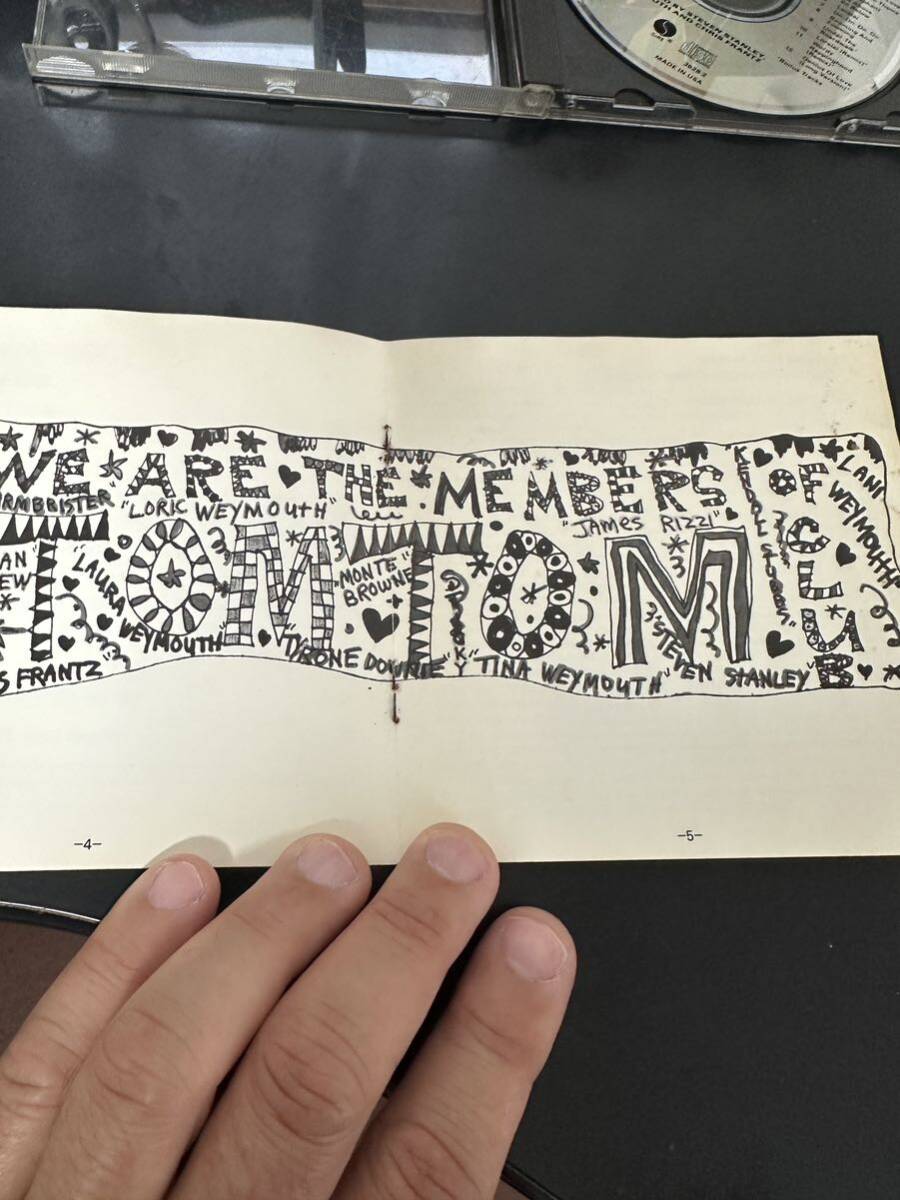 D BY STEVEN STANLEY
UTH AND CHRIS FRANTZ
SIRE
3628-2
MADE IN USA
WE ARE THE MEMBERS OF
RMBRISTER
"LORIC WEYMOUTH"
"JAMES RIZZI"
LANI WEYMOUTH"
TOM TOM CLUB
AN
EW
"LAURA WEYMOUTH"
"MONTE BROWNE"
S FRANTZ"
"TYRONE DOWNIE"
"TINA WEYMOUTH"
"STEVEN STANLEY"
-4-
-5-